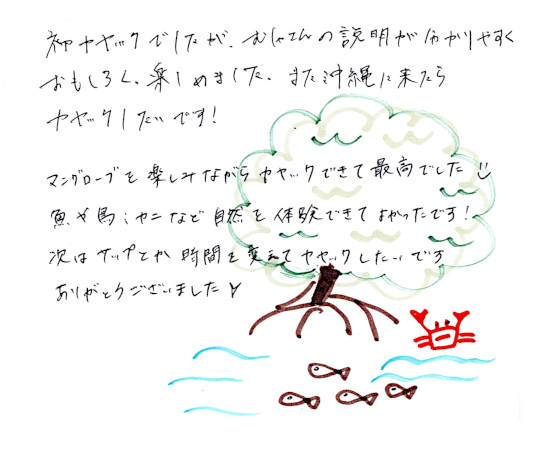 初カヤックでしたが、むちゃさんの説明が分かりやすく
おもしろく、楽しめました、また沖縄に来たら
カヤックしたいです!
マングローブを楽しみながらカヤックできて最高でした
魚や鳥、カニなど自然を体験できてよかったです!
次は サップとか 時間を変えて カヤックしたいです
ありがとうございました